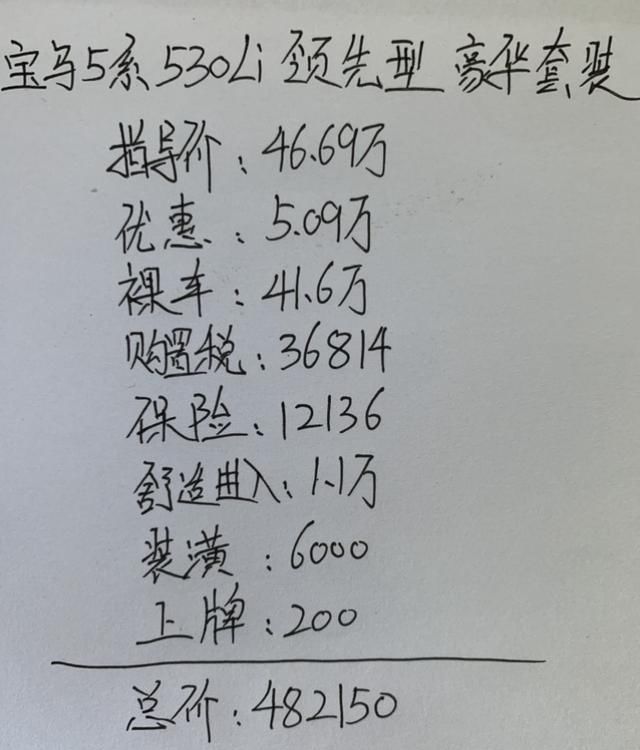 宝马5系530Li 领先型 豪华套装
指导价：46.69万
优惠：5.09万
裸车：41.6万
购置税：36814
保险：12136
舒适进入：1.1万
装潢：6000
上牌：200
总价：482150